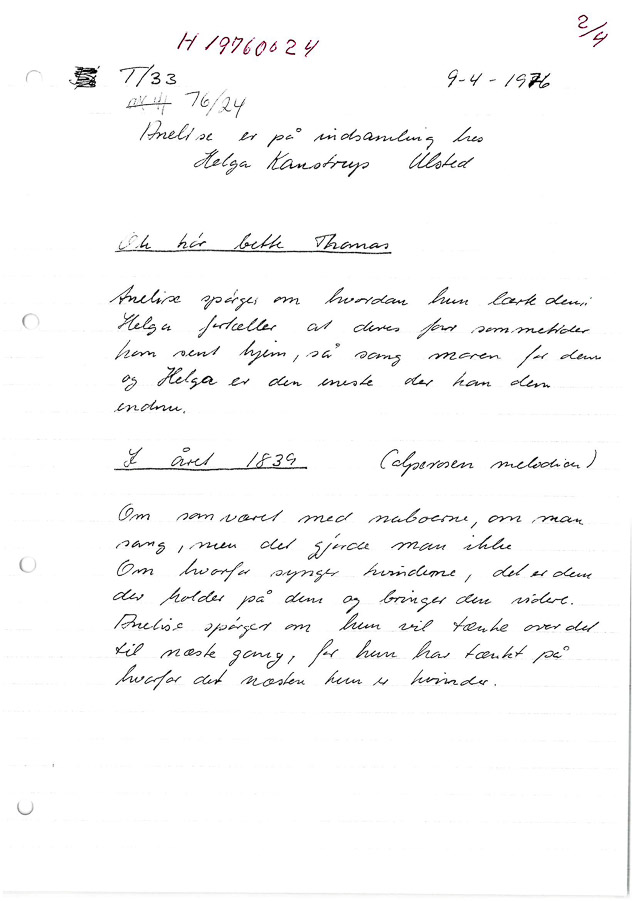 2/4
H 19760024
T/33 9-4-1976
76/24
Anelise er på indsamling hos
Helga Kanstrup Ulsted
Oh hør bette Thomas
Anelise spørger om hvordan hun lærte dem.
Helga fortæller at deres far sommetider
kom sent hjem, så sang moren for dem
og Helga er den eneste der kan dem
endnu.
I året 1839 (alperosen melodien)
Om samværet med naboerne, om man
sang, men det gjorde man ikke
Om hvorfor synger kvinderne, det er dem
der holder på dem og bringer den videre.
Anelise spørger om hun vil tænke over det
til næste gang, for hun har tænkt på
hvorfor det næsten kun er kvinder.